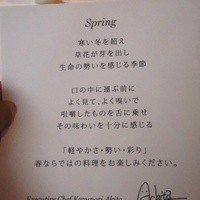 Spring
寒い冬を超え
草花が芽を出し
生命の勢いを感じる季節
口の中に運ぶ前に
よく見て、よく嗅いで
咀嚼したものを舌に乗せ
その味わいを十分に感じる
「軽やかさ・勢い・彩り」
春ならではの料理をお楽しみください。
Executive Chef Kazunori Akita